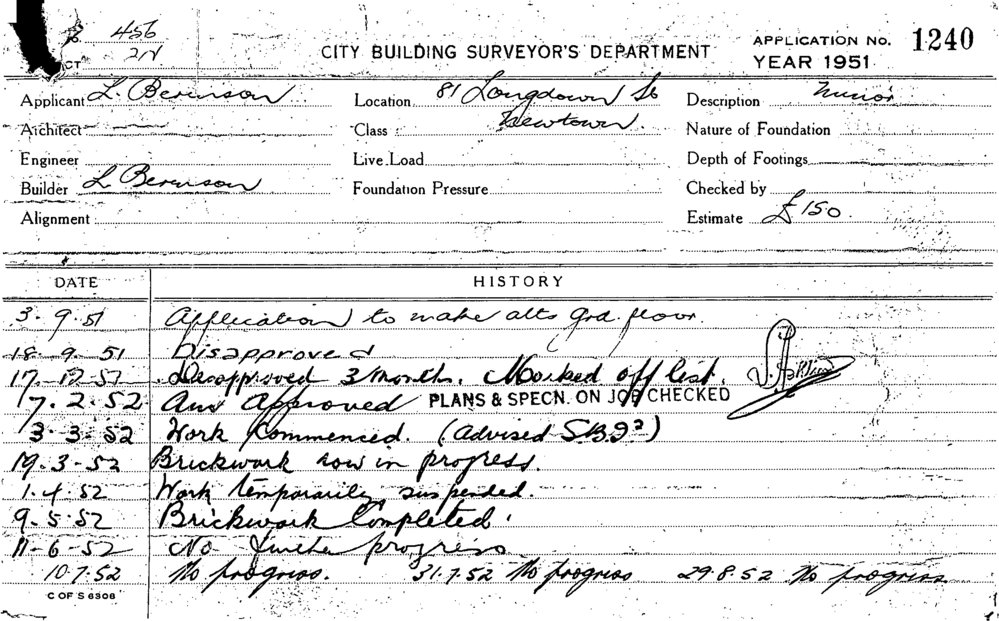 456
2N
CT
CITY BUILDING SURVEYOR'S DEPARTMENT
APPLICATION No. 1240
YEAR 1951
Applicant L. Berenson
Location 81 Longdown St
Newtown.
Description Minor
Architect
Class
Nature of Foundation
Engineer
Live Load
Depth of Footings
Builder L Berenson
Foundation Pressure
Checked by
Alignment
Estimate £150.
DATE HISTORY
3.9.51 Application to make alts grd. floor.
18.9.51 Disapproved
17.12.51 Disapproved 3 months. Marked off list.
7.2.52 Approved PLANS & SPECN. ON JOB CHECKED
3-3-52 Work Commenced. (Advised
19.3-52 Brickwork now in progress.
1.4.52 Work temporarily suspended.
9-5-52 Brickwork Completed.
11-6-52 No further progress
10.7.52 No progress. 31.7.52 No progress 29.8.52 No progress
C OF S 6306